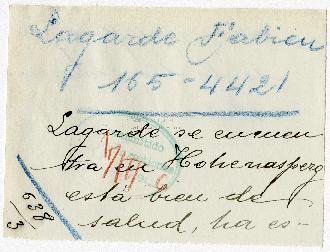 Lagarde Fabien
165-4421
Lagarde se encuen
tra en Hohenasperg
está bien de
salud, ha es-
638
3